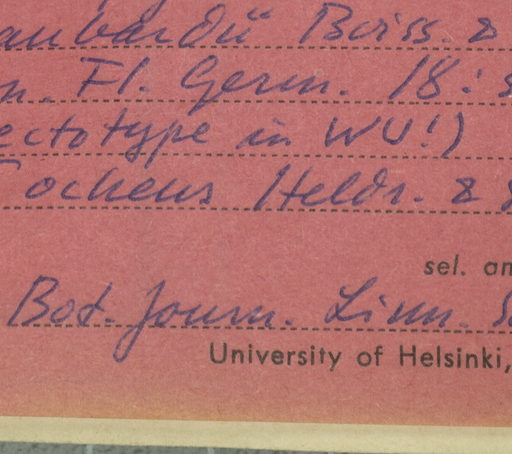 aubardii Boiss. &
n. Fl. Germ. 18: s
ectotype in WU!)
ochens Heldr. & s
sel. an
Bot. Journ. Linn. S
University of Helsinki,